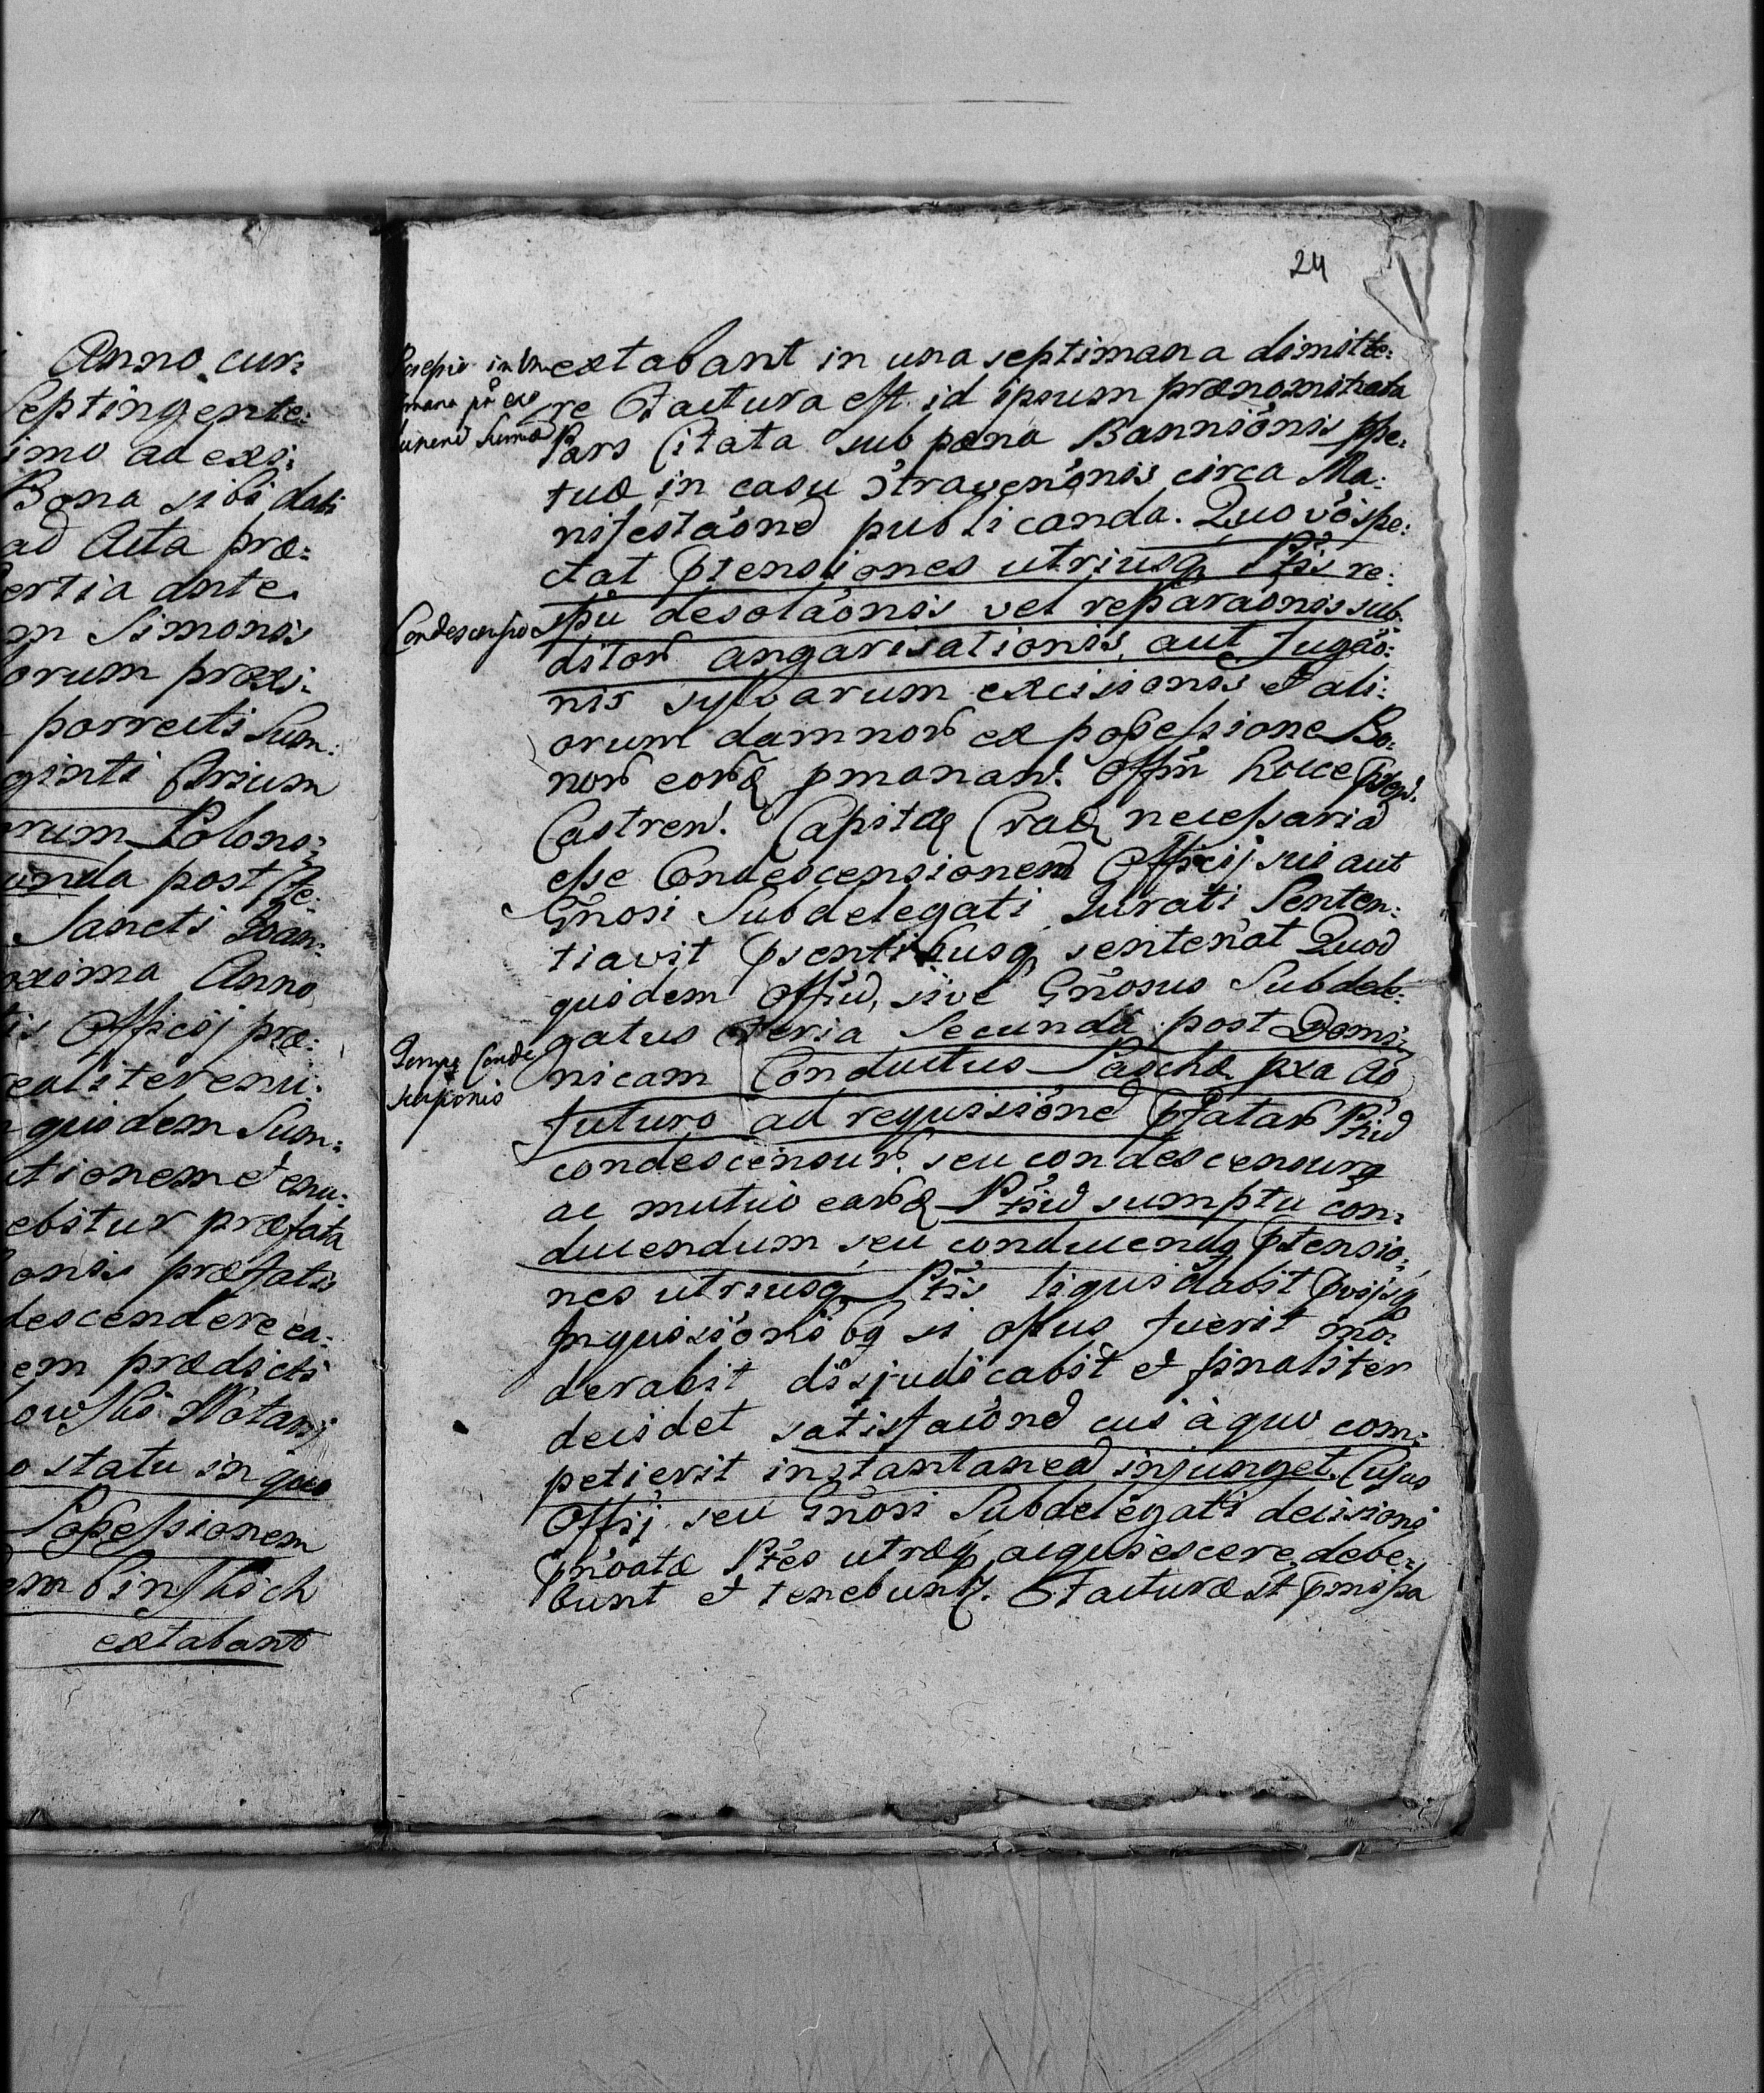 Anno cur:
Septingente:
imo ad exi:
Bona sibi dati
ad Acta præ:
ertia ante
m Simonis
orum proxi:
porrecti Sum:
ginti trium
orum Poloni:
unda post Fe:
Sancti Joan:
oxima Anno
tis Officij præ:
ealiter enu:
quidem Sum:
utionem et enu:
ebitur præfata
onis præfatis
descendere ea:
em prædicti
owski Notarij
o statu in quo
Possessionem
em Pinskich
extabant
24
extabant in una septimana dimitte:
re Factura est id ipsum prænominata
Pars Citata sub pæna Bannionis ppe:
tuæ in casu Straven̄onis circa Ma:
nifestāone publicanda. Quo vo spe:
ctat Ptensiones utriusq Ptis re:
spū desolāonis vel reparaonis sub
ditor angarisationis, aut fugāo:
nis sylvarum excisionis et ali:
orum damnor ex possessione Bo:
nor eorq pmanan. Offm hocce
Castren. Capitæ Cracq necessaria
esse Condescensionem Officij sui aut
Gnosi Subdelegati Jurati Senten:
tiavit Psentibusq sentenat Quod
quidem Offm, sive Gnosus Subdele:
gatus Feria Secunda post Domi:
nicam Conductus Paschæ pxa Ao
futuro ad requisione Pfatar Ptiu
condescensur. seu condescensurq
ac mutuo earq Ptiu sumptu con:
ducendum seu conducendq Ptensio:
nes utriusq Ptis liquidabit
Inquisionibq si opus fuerit mo:
derabit disjudicabit et finaliter
decidet satisfacione cui à quo com:
petierit instantanea injunget. Cujus
Offij seu Gnosi Subdelegati decisioni
Pnoatæ Ptes utræq acquiescere debe:
bunt et tenebuntr. Facturæ st
Condescensio
Temps Conde
scensionis